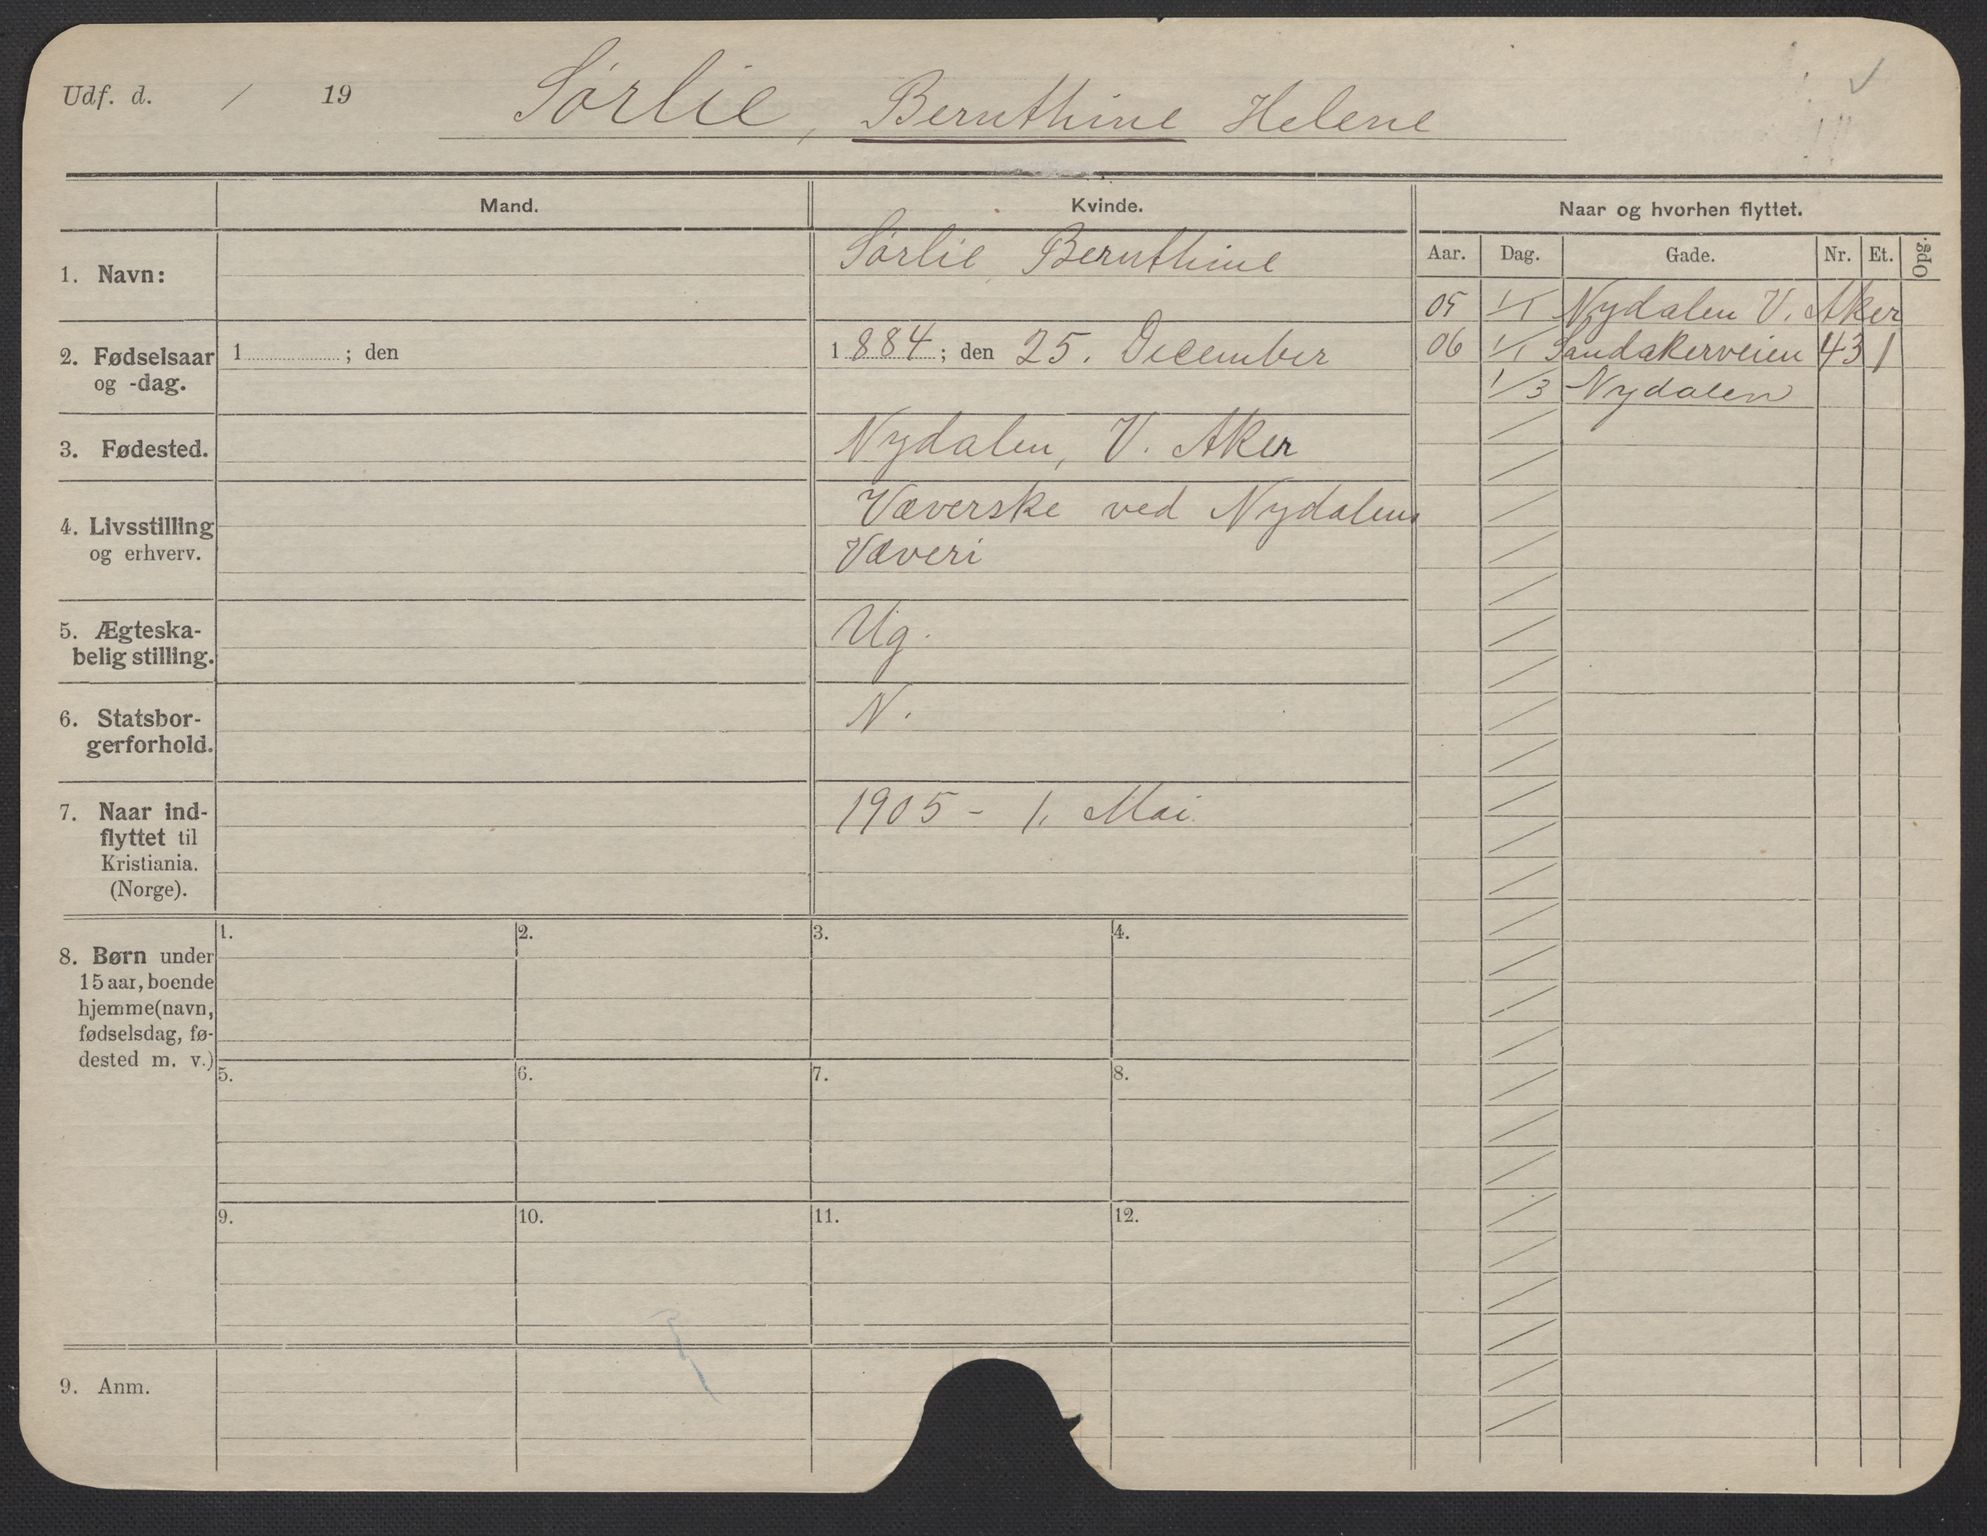 Udf. d. / 19
Sørlie, Bernthine Helene
Mand.
Kvinde.
Naar og hvorhen flyttet.
Aar. Dag. Gade. Nr. Et. Opg.
1. Navn:
Sørlie Bernthine
05 1/1 Nydalen V. Aker
06 1/1 Sandakerveien 43 1
1/3 Nydalen
2. Fødselsaar
og -dag.
1 ; den
1884; den 25. December
3. Fødested.
Nydalen, V. Aker
4. Livsstilling
og erhverv.
Væverske ved Nydalens
Væveri
5. Ægteska-
belig stilling.
Ug.
6. Statsbor-
gerforhold.
N.
7. Naar ind-
flyttet til
Kristiania.
(Norge).
1905 - 1. Mai.
8. Børn under
15 aar, boende
hjemme (navn,
fødselsdag, fø-
dested m. v.)
1. 2. 3. 4.
5. 6. 7. 8.
9. 10. 11. 12.
9. Anm.